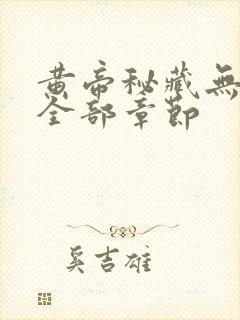 黄帝秘藏無
全部章節
奚吉雄